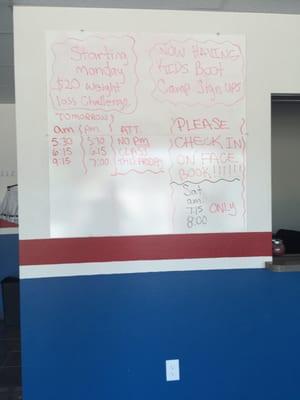 Starting
monday
$20 weight
loss Challenge
NOW HAVING
KIDS Boot
Camp Sign UPS
TOMORROW
am pm
5:30 5:30
6:15 6:15
9:15 7:00
ATT.
NO PM
CLASS
THIS FRIDAY
PLEASE
CHECK IN
ON FACE
BOOK!!!!!!
Sat
am
7:15 ONLY
8:00